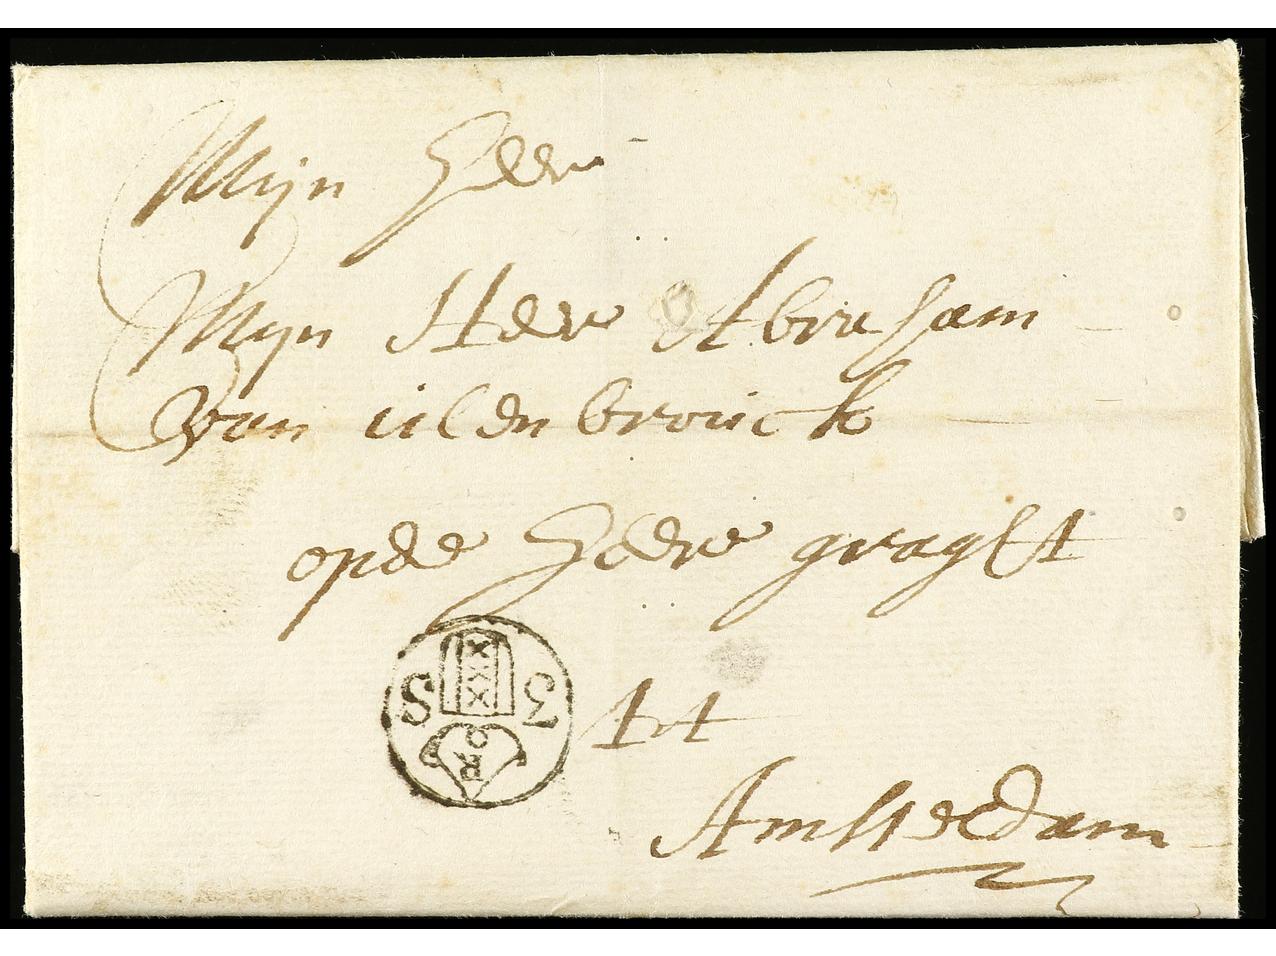 Mijn Heer
Mijn Heer Abraham
van uilenbrouck
opde Heere graght
XXX
S 3
O
R
At
Amsterdam